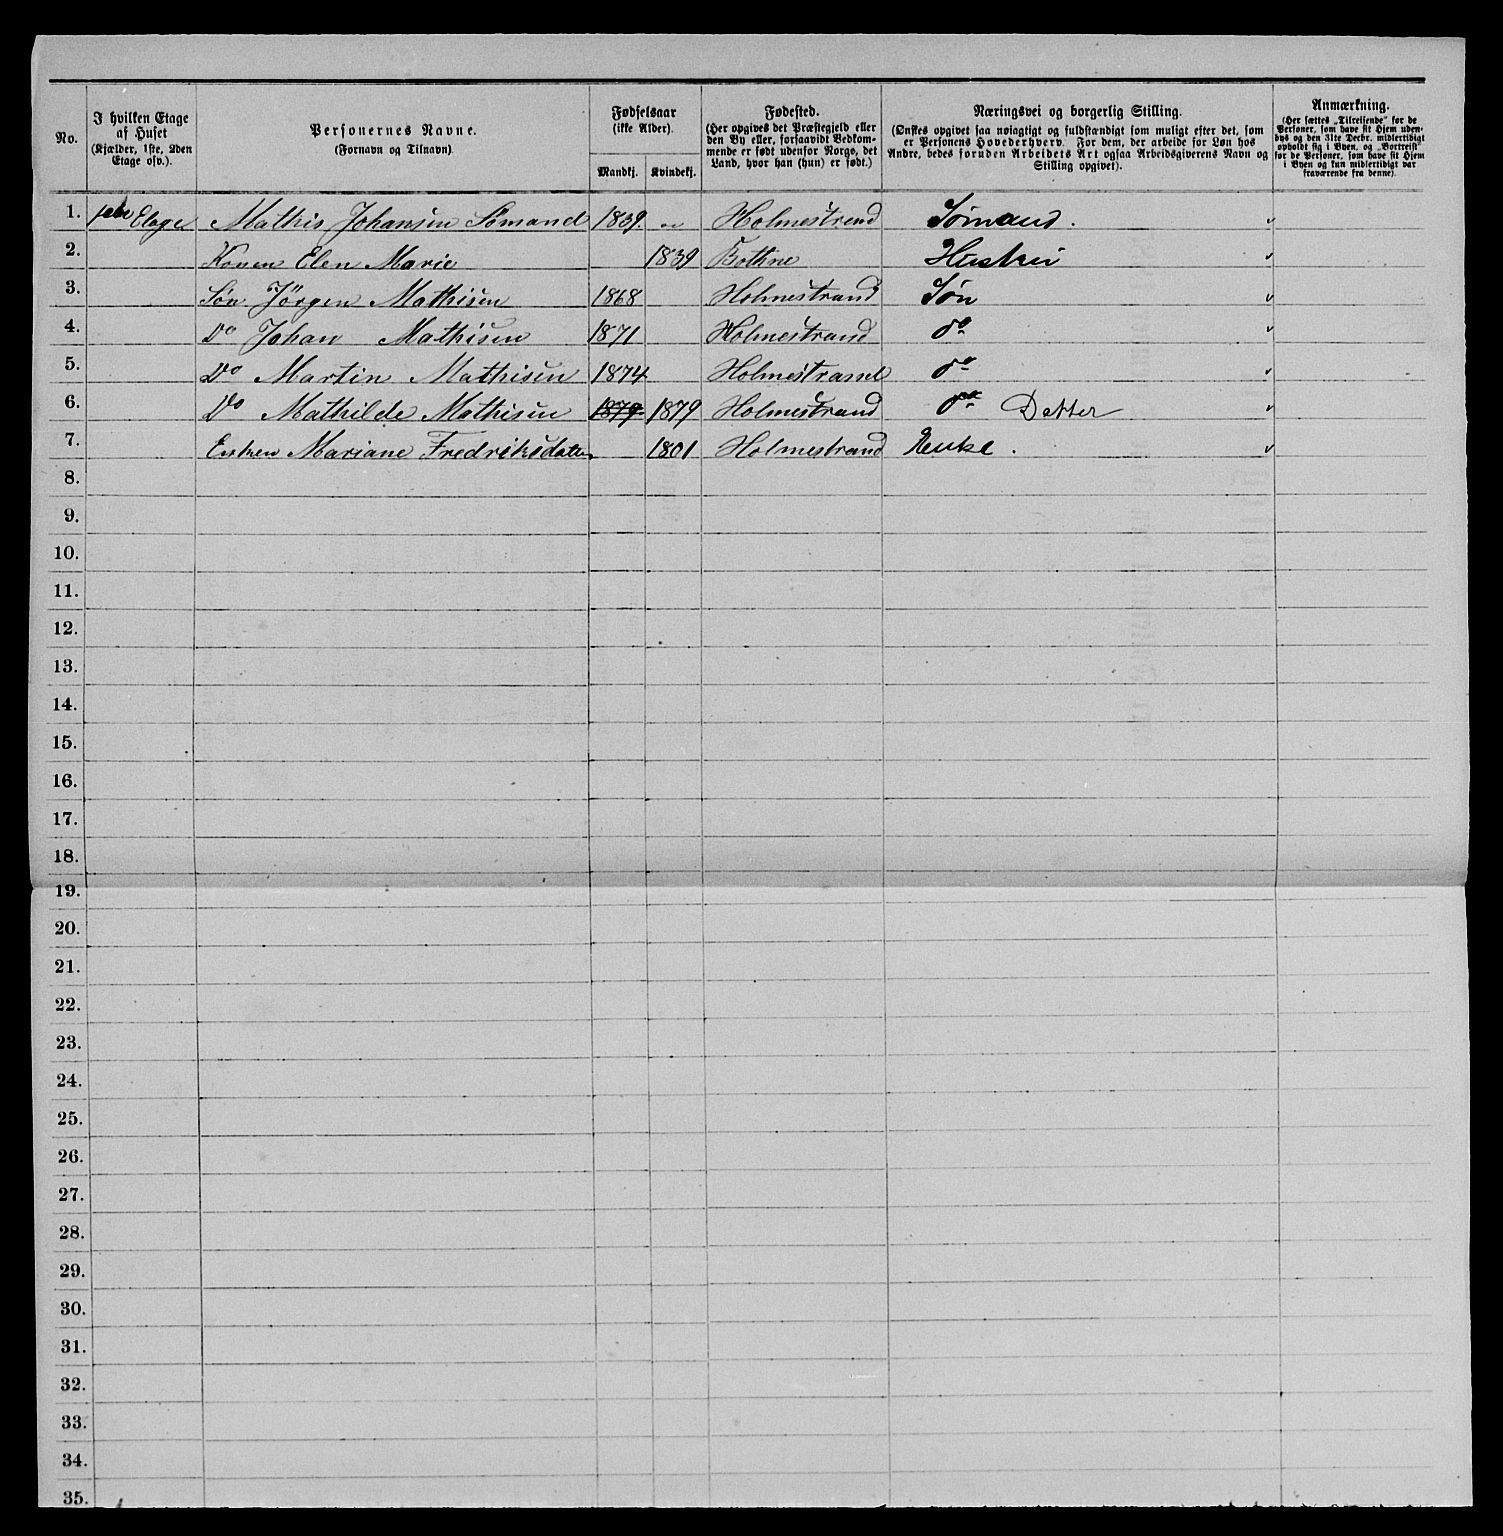 No.
I hvilken Etage
af Huset
(Kjælder, 1ste, 2den
Etage osv.).
Personernes Navne.
(Fornavn og Tilnavn)
Fødselsaar
(ikke Alder).
Mandkj. Kvindekj.
Fødested.
(Her opgives det Præstegjeld eller
den By eller, forsaavidt Vedkom-
mende er født udenfor Norge, det
Land, hvor han (hun) er født.)
Næringsvei og borgerlig Stilling.
(Ønskes opgivet saa nøiagtigt og fuldstændigt som muligt efter det, som
er Personens Hovederhverv. For dem, der arbeide for Løn hos
Andre, bedes foruden Arbeidets Art ogsaa Arbeidsgiverens Navn og
Stilling opgivet).
Anmærkning.
(Her sættes „Tilreisende" for de
Personer, som have sit Hjem uden-
bys og den 31te Decbr. midlertidigt
opholdt sig i Byen, og „Bortreist"
for de Personer, som have sit Hjem
i Byen og kun midlertidigt var
fraværende fra denne).
1. 1ste Etage Mathis Johansen Sømand 1839. „ Holmestrand Sømand. „
2. Konen Elen Marie 1839 Bothne Hustru „
3. Søn Jørgen Mathisen 1868 Holmestrand Søn „
4. Do Johan Mathisen 1871 Holmestrand do „
5. Do Martin Mathisen 1874 Holmestrand do „
6. Do Mathilde Mathisen 1879 1879 Holmestrand do Datter „
7. Enken Mariane Fredriksdatter 1801 Holmestrand Enke. „
8.
9.
10.
11.
12.
13.
14.
15.
16.
17.
18.
19.
20.
21.
22.
23.
24.
25.
26.
27.
28.
29.
30.
31.
32.
33.
34.
35.